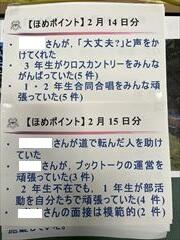 【ほめポイント】2月14日分
・　　　さんが、「大丈夫?」と声をか
けてくれた
・　3年生がクロスカントリーをみんな
がんばっていた(5件)
・　1・2年生合同合唱をみんな頑
張っていた(5件)
【ほめポイント】2月15日分
・　　　さんが道で転んだ人を助け
ていた
・　　　さんが、ブックトークの運営を
頑張っていた(3件)
・　2年生不在でも、1年生が部活
動を自分たちで頑張っていた(4件)
・　　　さんの面接は模範的(2件)